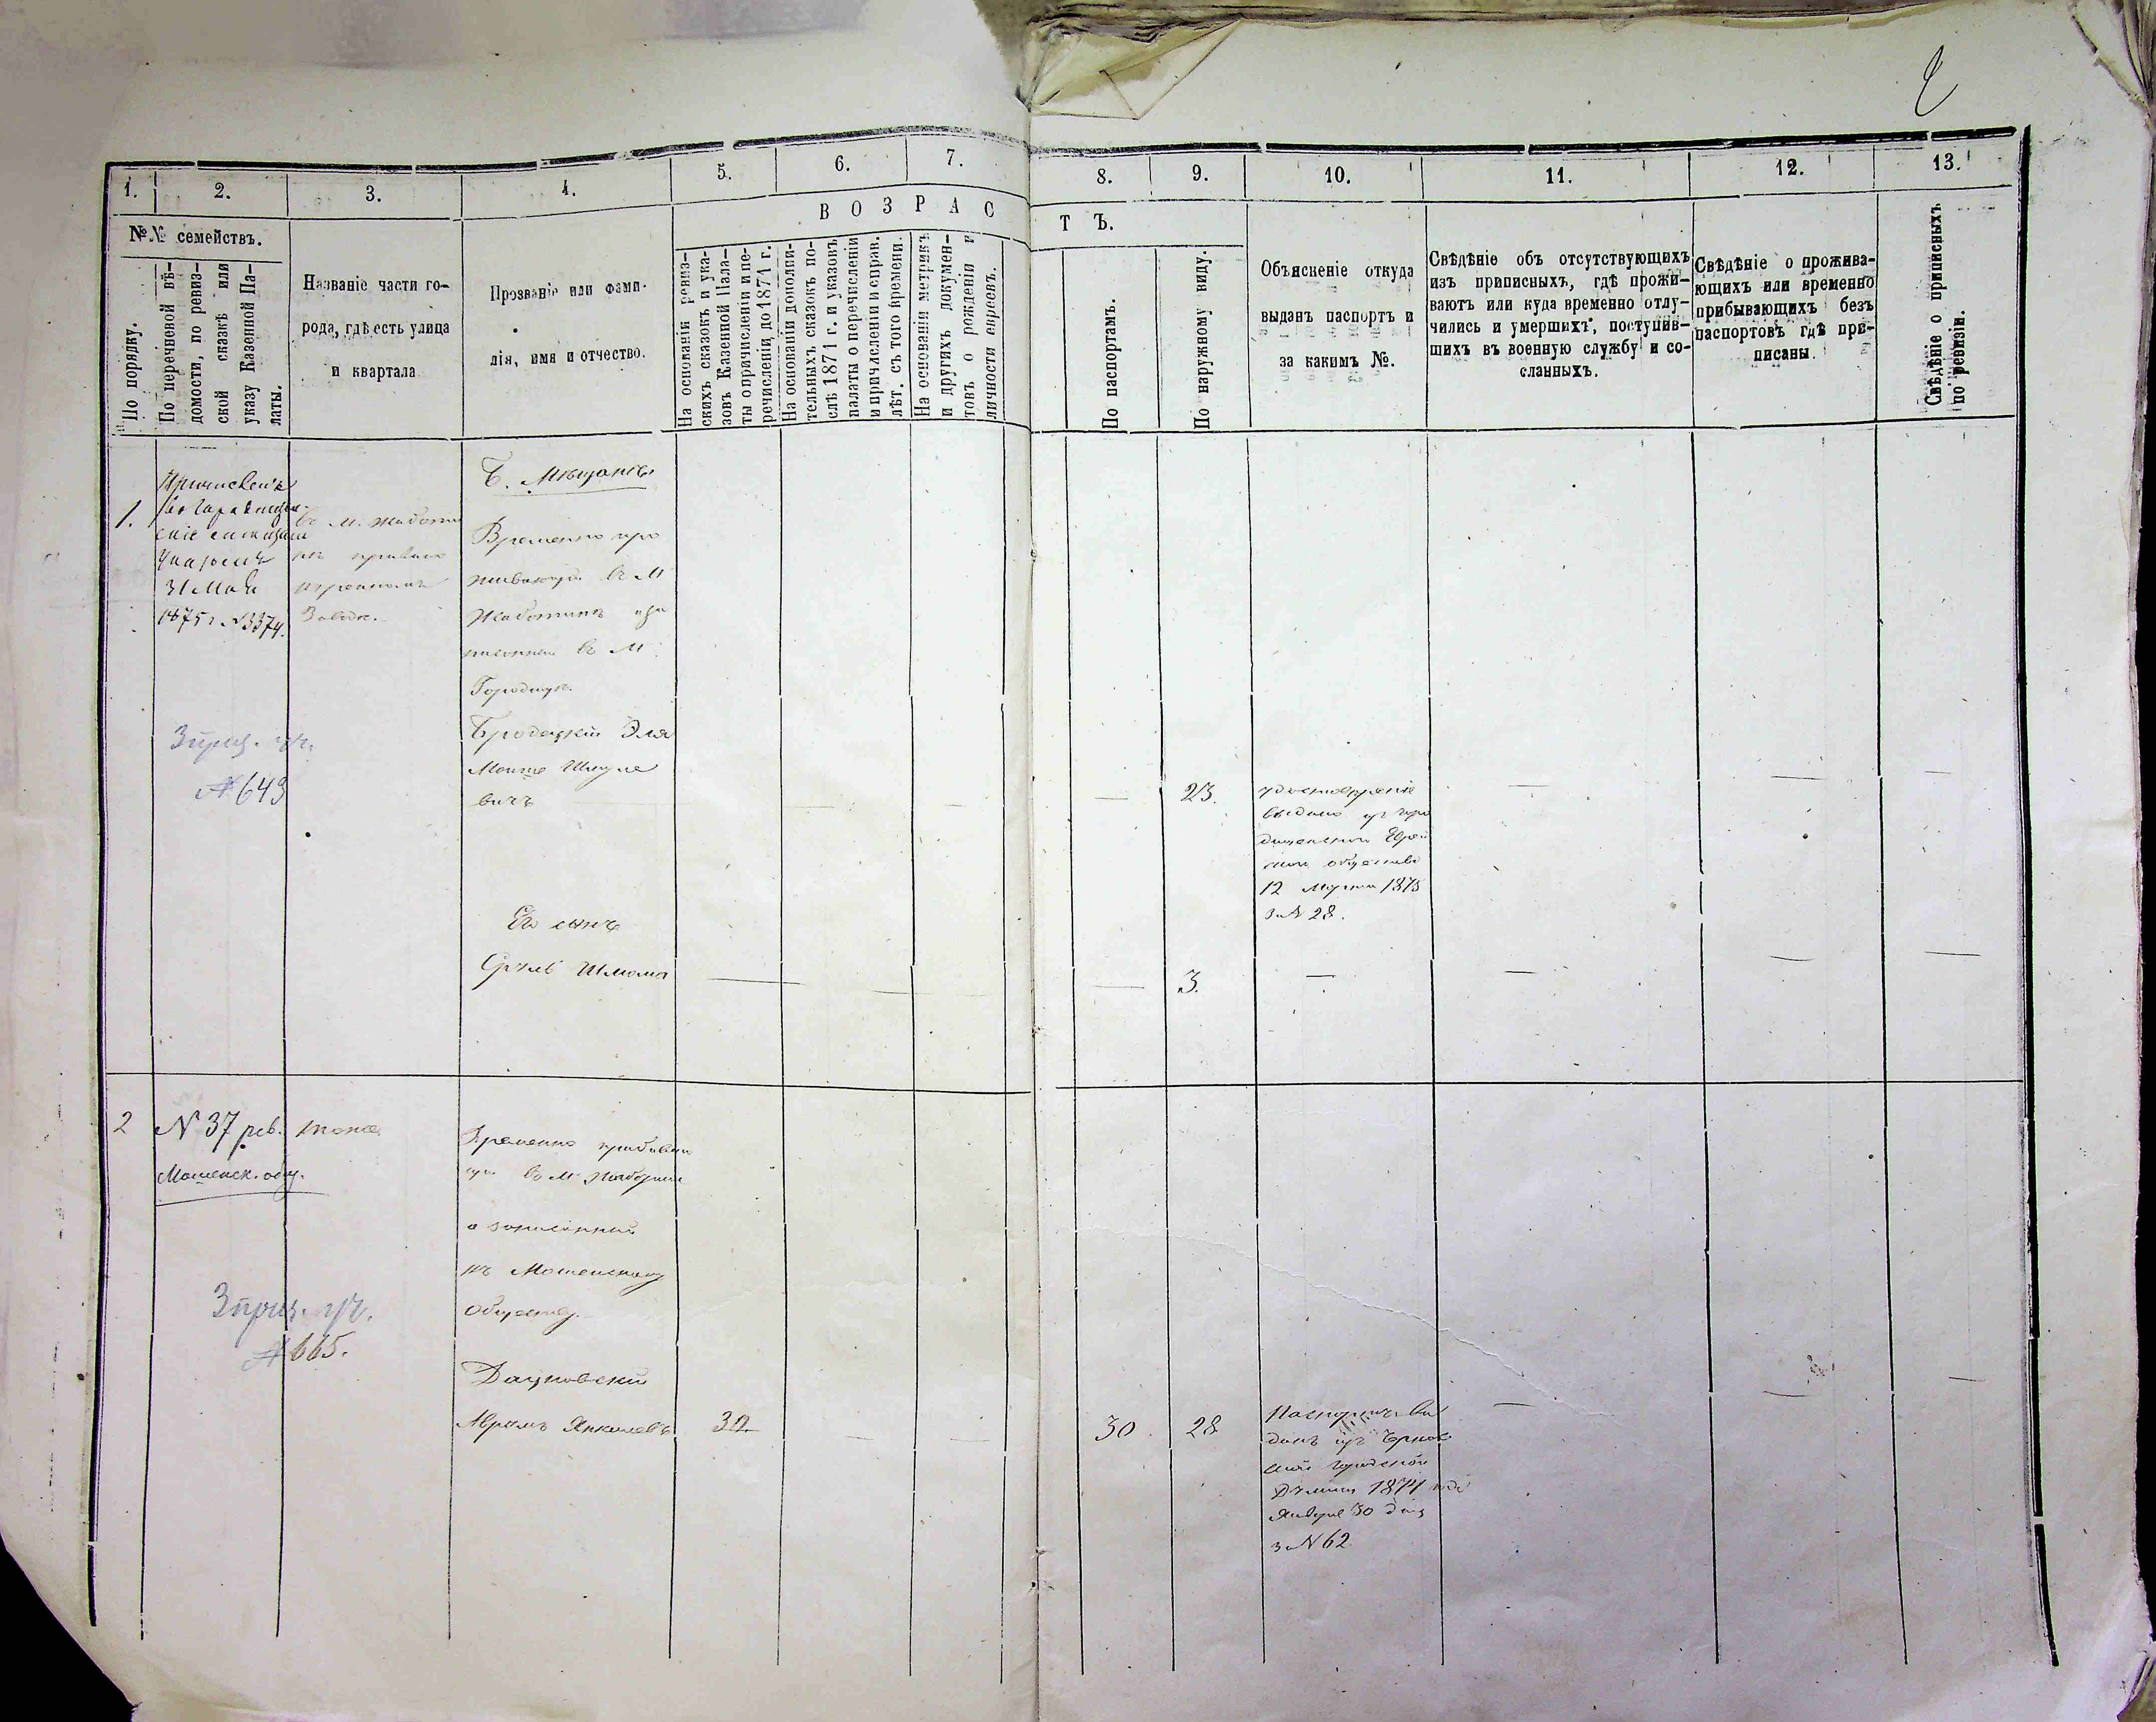 1.
2.
3.
4.
5.
6.
7.
8.
9.
10.
11.
12.
13.
№№ семействъ.
По порядку.
По перечневой вѣ-
домости, по ревиз-
ской сказкѣ или
указу Казенной Па-
латы.
Названіе части го-
рода, гдѣ есть улица
и квартала
Прозваніе или фами-
лія, имя и отчество.
ВОЗРАСТЪ.
На основаніи ревиз-
скихъ сказокъ и ука-
зовъ Казенной Пала-
ты о причисленіи и пе-
речисленіи до 1871 г.
На основаніи дополни-
тельныхъ сказокъ по-
слѣ 1871 г. и указовъ
палаты о перечисленіи
и причисленіи и справ.
лѣт. съ того времени.
На основаніи метрикъ
и другихъ докумен-
товъ о рожденіи и
личности евреевъ.
По паспортамъ.
По наружному виду.
Объясненіе откуда
выданъ паспортъ и
за какимъ №.
Свѣдѣніе объ отсутствующихъ
изъ приписныхъ, гдѣ прожи-
ваютъ или куда временно отлу-
чились и умершихъ, поступив-
шихъ въ военную службу и со-
сланныхъ.
Свѣдѣніе о прожива-
ющихъ или временно
прибывающихъ безъ
паспортовъ гдѣ при-
писаны.
Свѣдѣніе о приписныхъ
по ревизіи.
1.
31 Мая
1875 г. № 3374.
въ м. Жаботи
Заводѣ.
Б. Мѣщанъ
Временно про
живающій въ М
Жаботинѣ при
писанный въ М.
Городищѣ.
Бродецкій Эля
Мошко Шмуле
вичъ
3 приз. уч.
№ 643
23.
удостовѣреніе
выдано изъ Горо
дищенскаго Еврей
скаго общества
12 Марта 1875
за № 28.
Его сынъ
Сруль Шлема
3.
2
№ 37 рев.
Мошенск. общ.
тоже
Временно прибываю
щій въ м. Жаботинѣ
а записанный
къ Мошенскому
Обществу.
3 приз. уч.
№ 665.
Дацковскій
Аврумъ Янкелевъ
32.
30
28
Паспортъ вы
данъ изъ Черкас
ской Городской
Думы 1874 года
Января 30 дня
за № 62